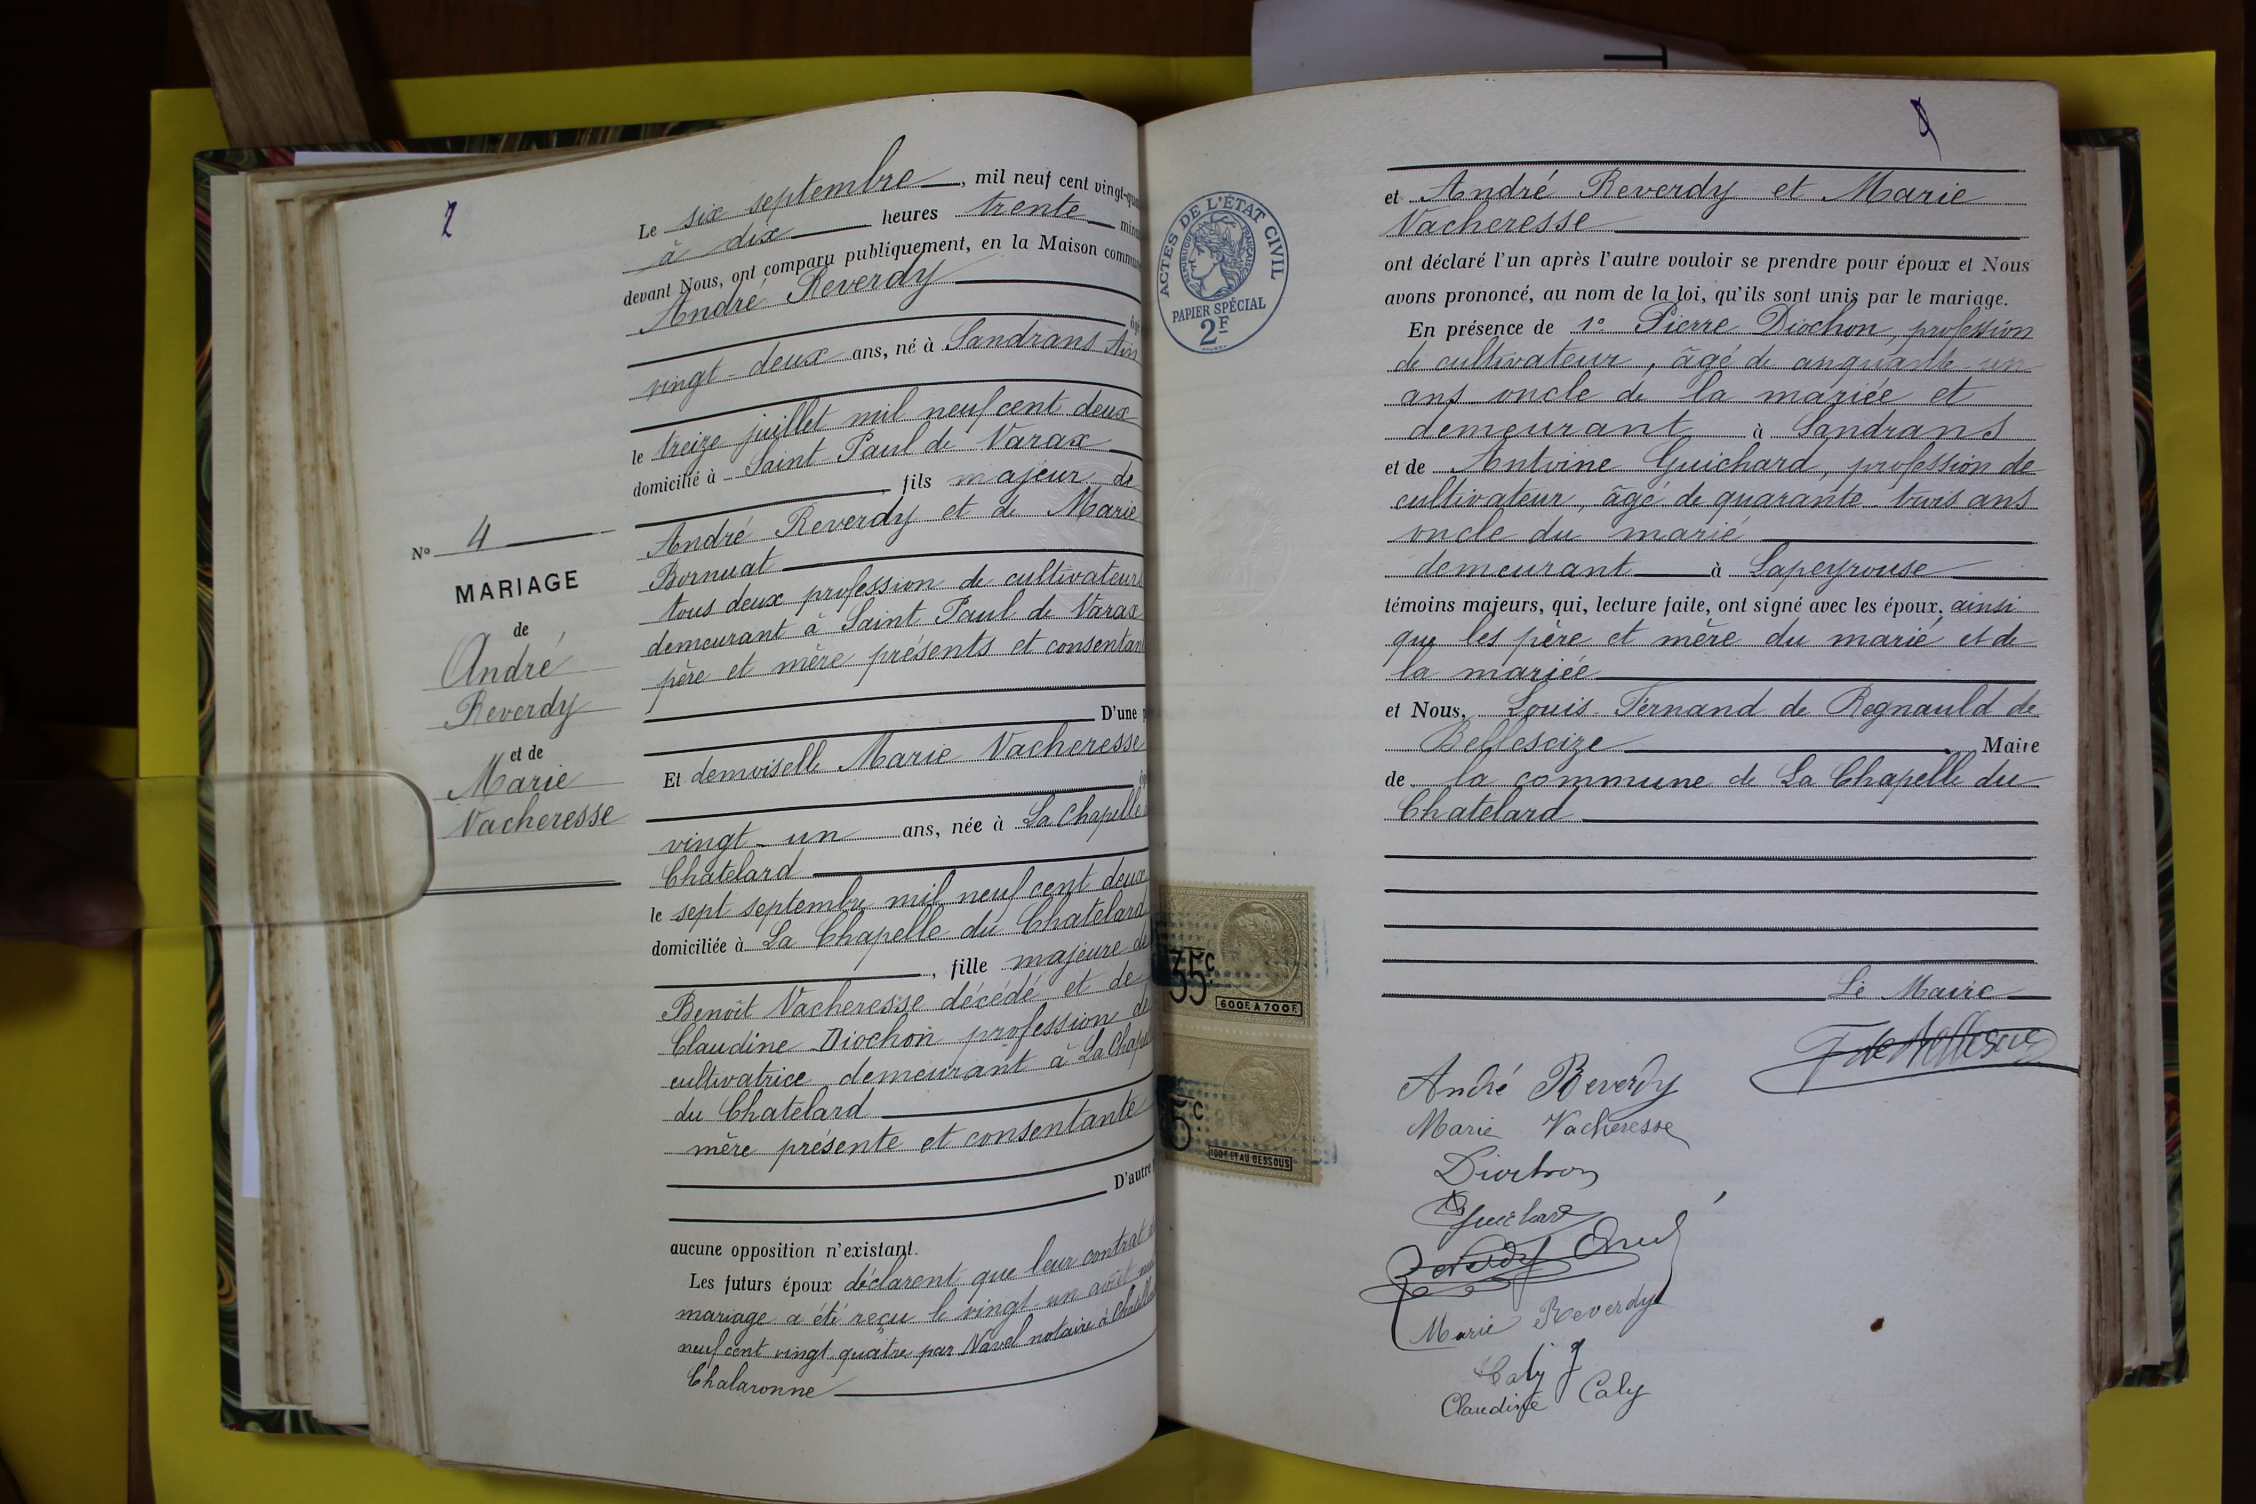 2
Le six septembre, mil neuf cent vingt-qua
à dix heures trente minu
devant Nous, ont comparu publiquement, en la Maison commune
André Reverdy
âgé
vingt-deux ans, né à Sandrans Ain
le treize juillet mil neuf cent deux
domicilié à Saint Paul de Varax
fils majeur de
André Reverdy et de Marie
Bornuat
tous deux profession de cultivateurs
demeurant à Saint Paul de Varax
père et mère présents et consentan
D'une p
Et demoiselle Marie Vacheresse
vingt-un ans, née à La Chapelle
Chatelard
le sept septembre mil neuf cent deux
domiciliée à La Chapelle du Chatelard
, fille majeure de
Benoît Vacheresse décédé et de
Claudine Diochon profession de
cultivatrice demeurant à La Chapel
du Chatelard
mère présente et consentante
D'autre
aucune opposition n'existant.
Les futurs époux déclarent que leur contrat
mariage a été reçu le vingt un août mil
neuf cent vingt quatre par Navel notaire à Chatillon
Chalaronne
No 4
MARIAGE
de
André
Reverdy
et de
Marie
Vacheresse
ACTES DE L'ÉTAT CIVIL
RÉPUBLIQUE FRANÇAISE
PAPIER SPÉCIAL
2F
et André Reverdy et Marie
Vacheresse
ont déclaré l'un après l'autre vouloir se prendre pour époux et Nous
avons prononcé, au nom de la loi, qu'ils sont unis par le mariage.
En présence de 1º Pierre Diochon, profession
de cultivateur, âgé de cinquante-un
ans oncle de la mariée et
demeurant à Sandrans
et de Antoine Guichard, profession de
cultivateur, âgé de quarante-trois ans
oncle du marié
demeurant à Lapeyrouse
témoins majeurs, qui, lecture faite, ont signé avec les époux, ainsi
que les père et mère du marié et de
la mariée
et Nous, Louis-Fernand de Regnauld de
Bellescize Maire
de la commune de La Chapelle du
Chatelard
Le Maire
F de Bellescize
André Reverdy
Marie Vacheresse
Diochon
Guichard
Reverdy André
Marie Reverdy
Caly
Claudine Caly
600F. A 700F.
100F. ET AU DESSOUS